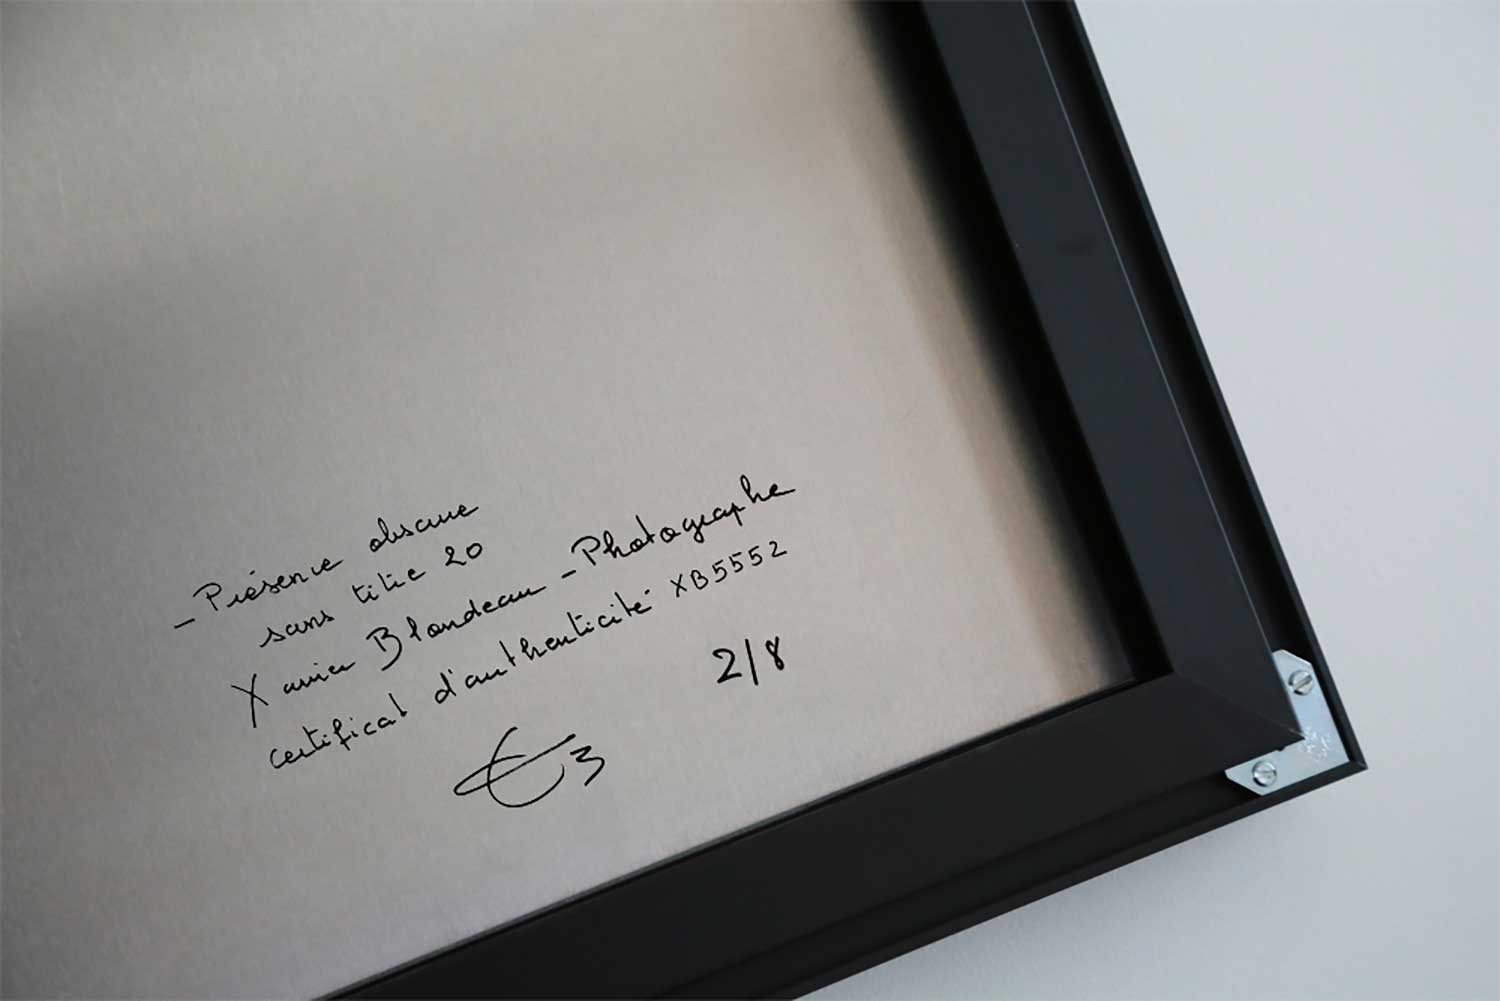 - Présence obscure
sans titre 20
Xavier Blondeau - Photographe
certificat d'authenticité XB5552
2/8